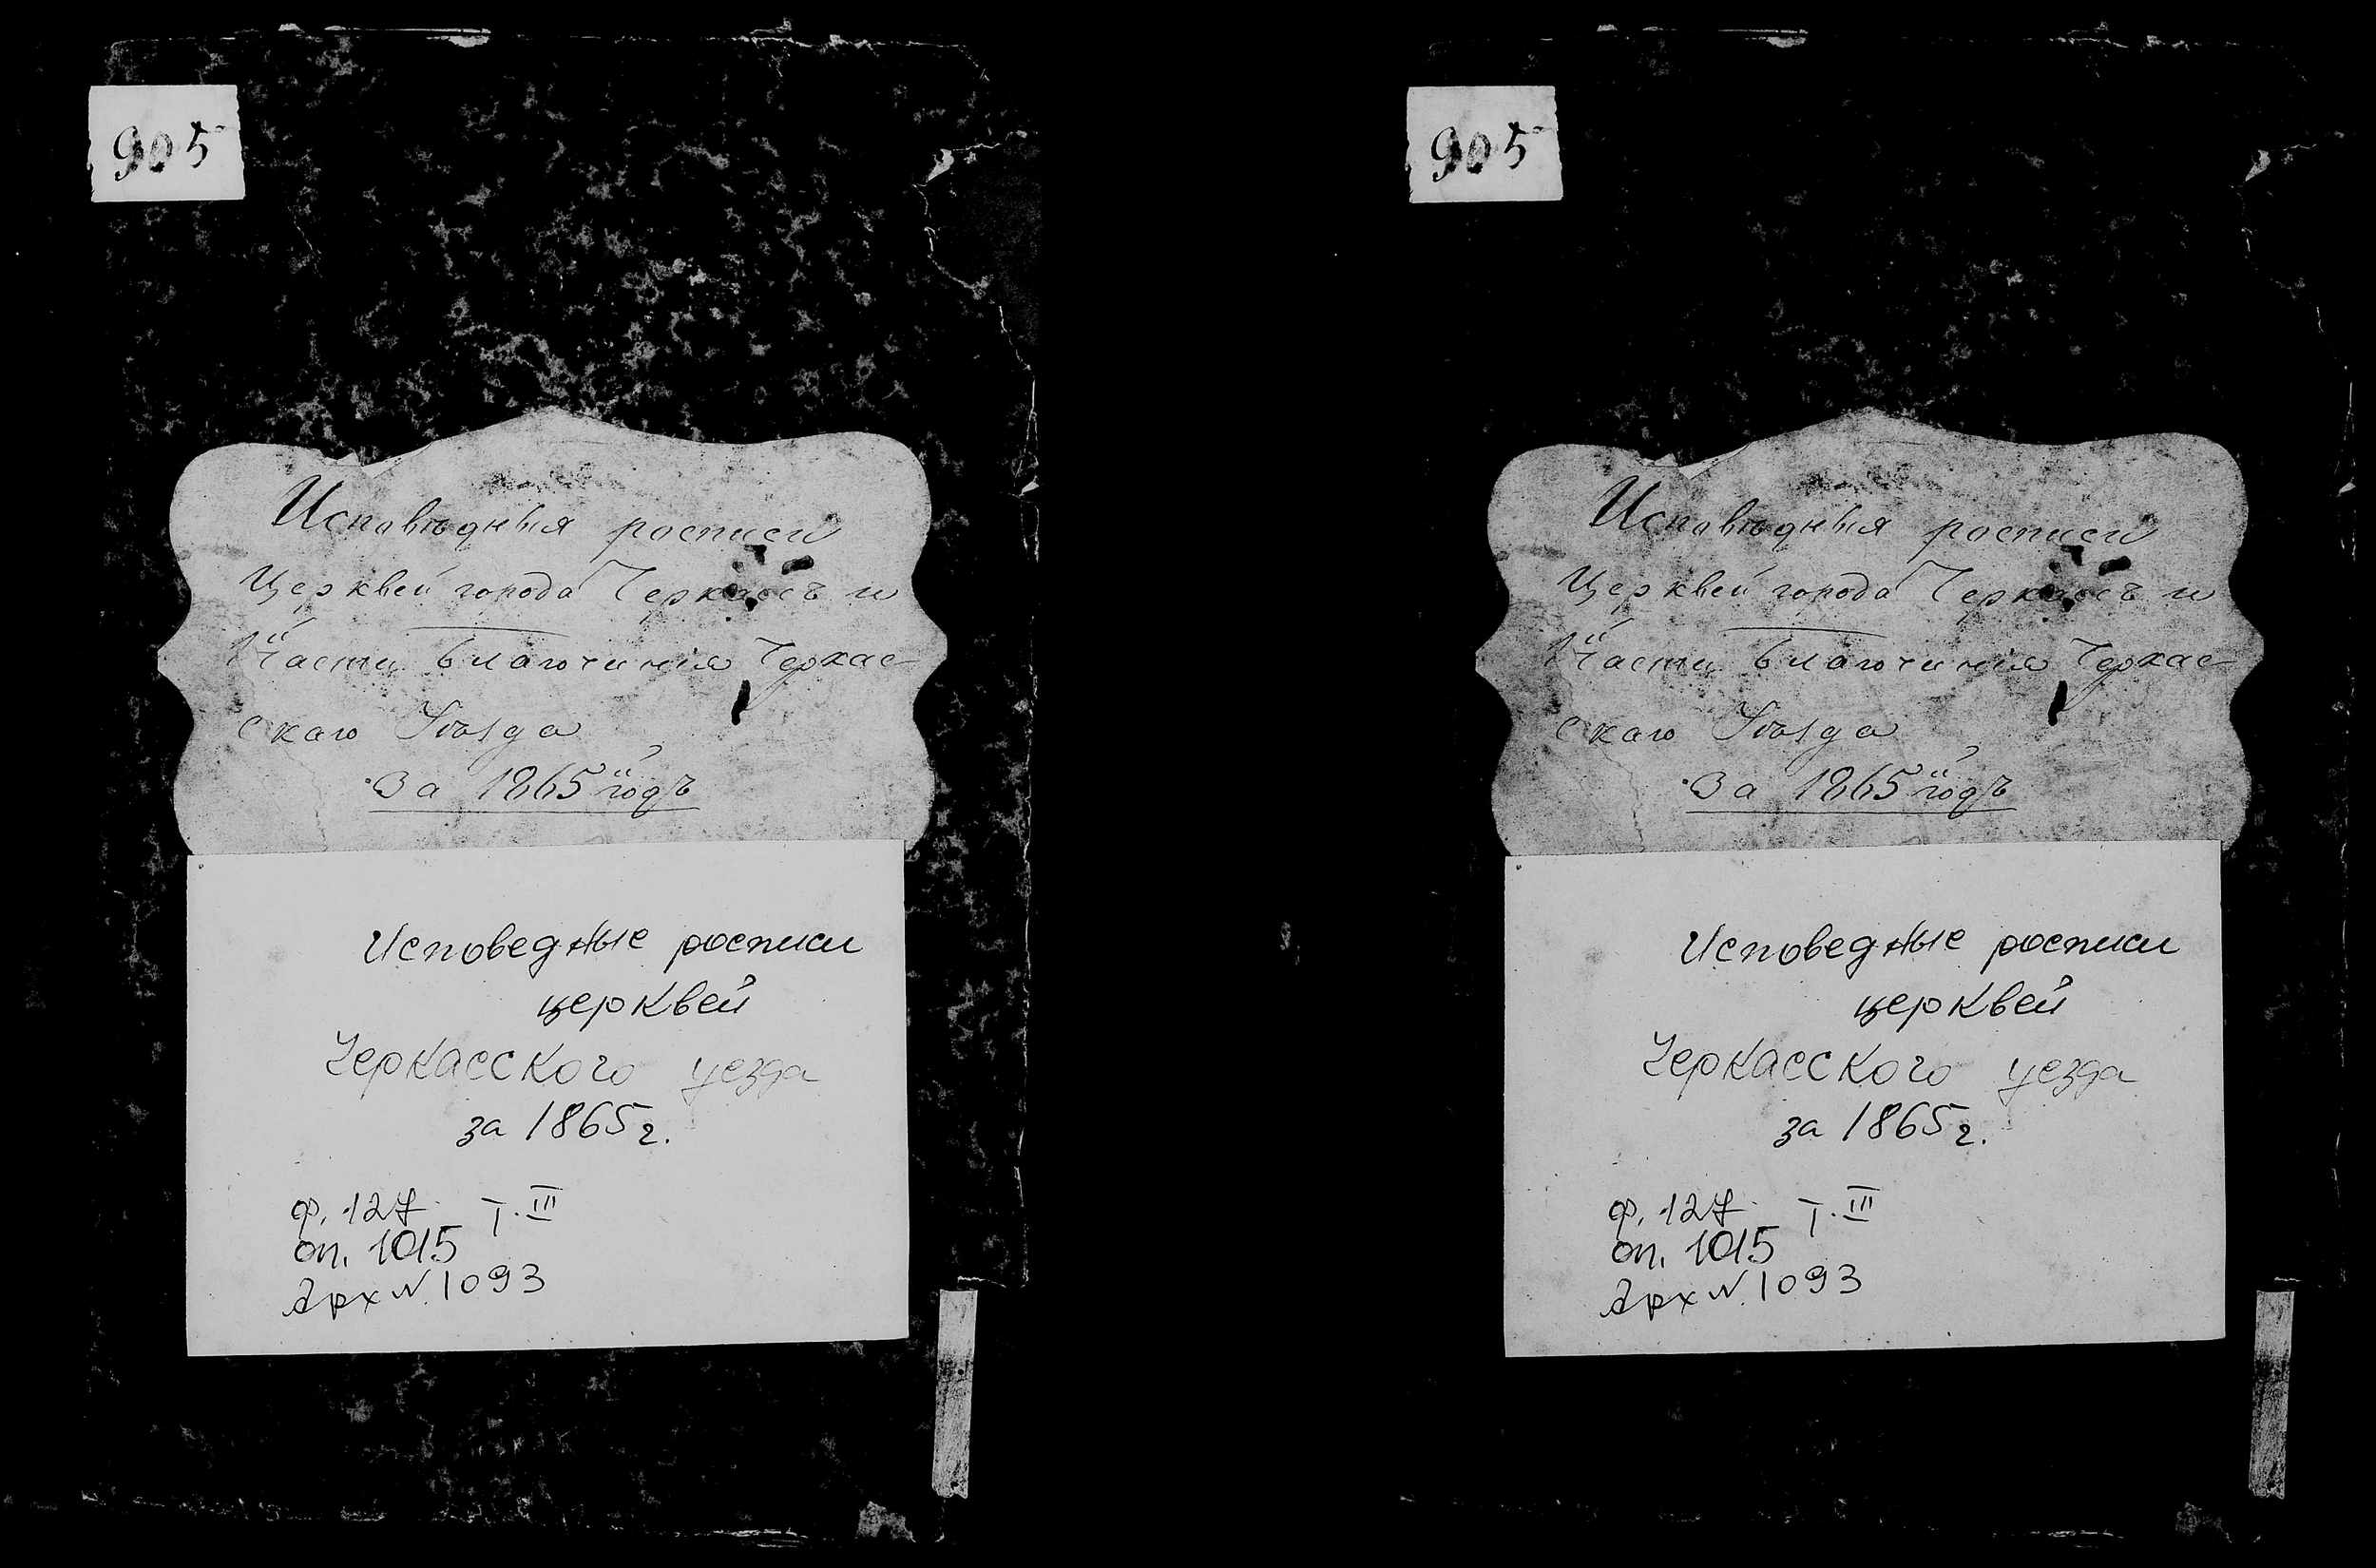 905
Исповѣдныя росписи
Церквей города Черкассъ и
1й Части благочинія Черкас-
скаго Уѣзда
За 1865й годъ
Исповедные росписи
церквей
Черкасского уезда
за 1865 г.
ф. 127 Т. III
оп. 1015
Арх N 1093
905
Исповѣдныя росписи
Церквей города Черкассъ и
1й Части благочинія Черкас-
скаго Уѣзда
За 1865й годъ
Исповедные росписи
церквей
Черкасского уезда
за 1865 г.
ф. 127 Т. III
оп. 1015
Арх N 1093